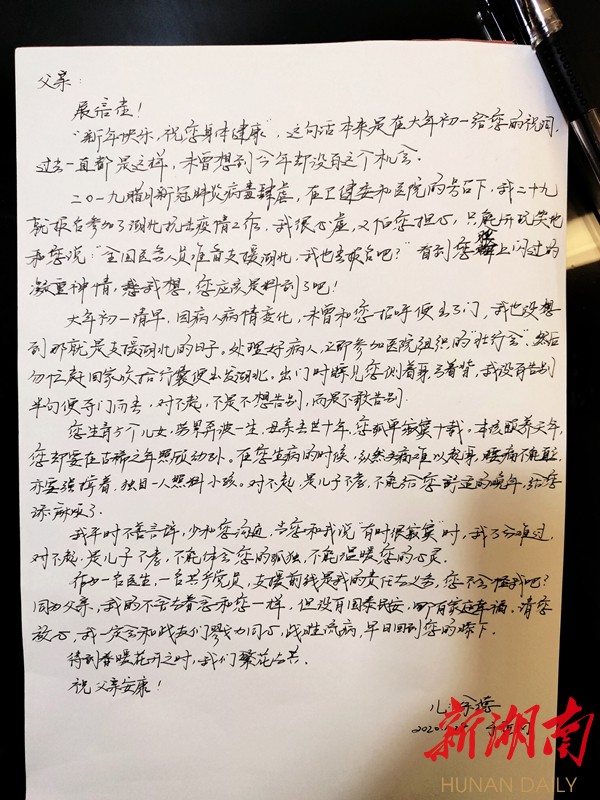 父亲：
展信佳！
“新年快乐，祝您身体健康”，这句话本来是在大年初一给您的祝词，
过去一直都是这样，未曾想到今年却没有这个机会。
二〇一九腊月新冠肺炎病毒肆虐，在卫健委和医院的号召下，我二十九
就报名参加了湖北抗击疫情工作，我很心虚，又怕您担心，只能开玩笑地
和您说：“全国医务人员准备支援湖北，我也去报名吧？”看到您脸上闪过的
凝重神情，我想，您应该是料到了吧！
大年初一清早，因病人病情变化，未曾和您招呼便出了门，我也没想
到那就是支援湖北的日子。处理好病人，立即参加医院组织的“壮行会”，然后
匆忙赶回家收拾行囊便出发湖北。出门时瞟见您侧着身弓着背，我没有告别
半句便夺门而去，对不起，不是不想告别，而是不敢告别。
您生育5个儿女，劳累奔波一生，母亲去世十年，您孤单寂寞十载。本该颐养天年，
您却要在古稀之年照顾幼孙。在您生病的时候，纵然头痛难以起身，腰痛不能直立，
亦要强撑着，独自一人照料小孩。对不起，是儿子不孝，不能给您舒适的晚年，给您
添麻烦了。
我平时不善言辞，少和您沟通，当您和我说“有时很寂寞”时，我万分难过，
对不起，是儿子不孝，不能体会您的孤独，不能温暖您的心灵。
作为一名医生，一名共产党员，支援前线是我的责任与义务，您不会怪我吧？
同为父亲，我的不舍与眷念和您一样，但没有国泰民安，哪有家庭幸福。请您
放心，我一定会和战友们勠力同心，战胜流病，早日回到您的膝下。
待到春暖花开之时，我们繁花与共。
祝 父亲安康！
儿：
2020
新湖南
HUNAN DAILY